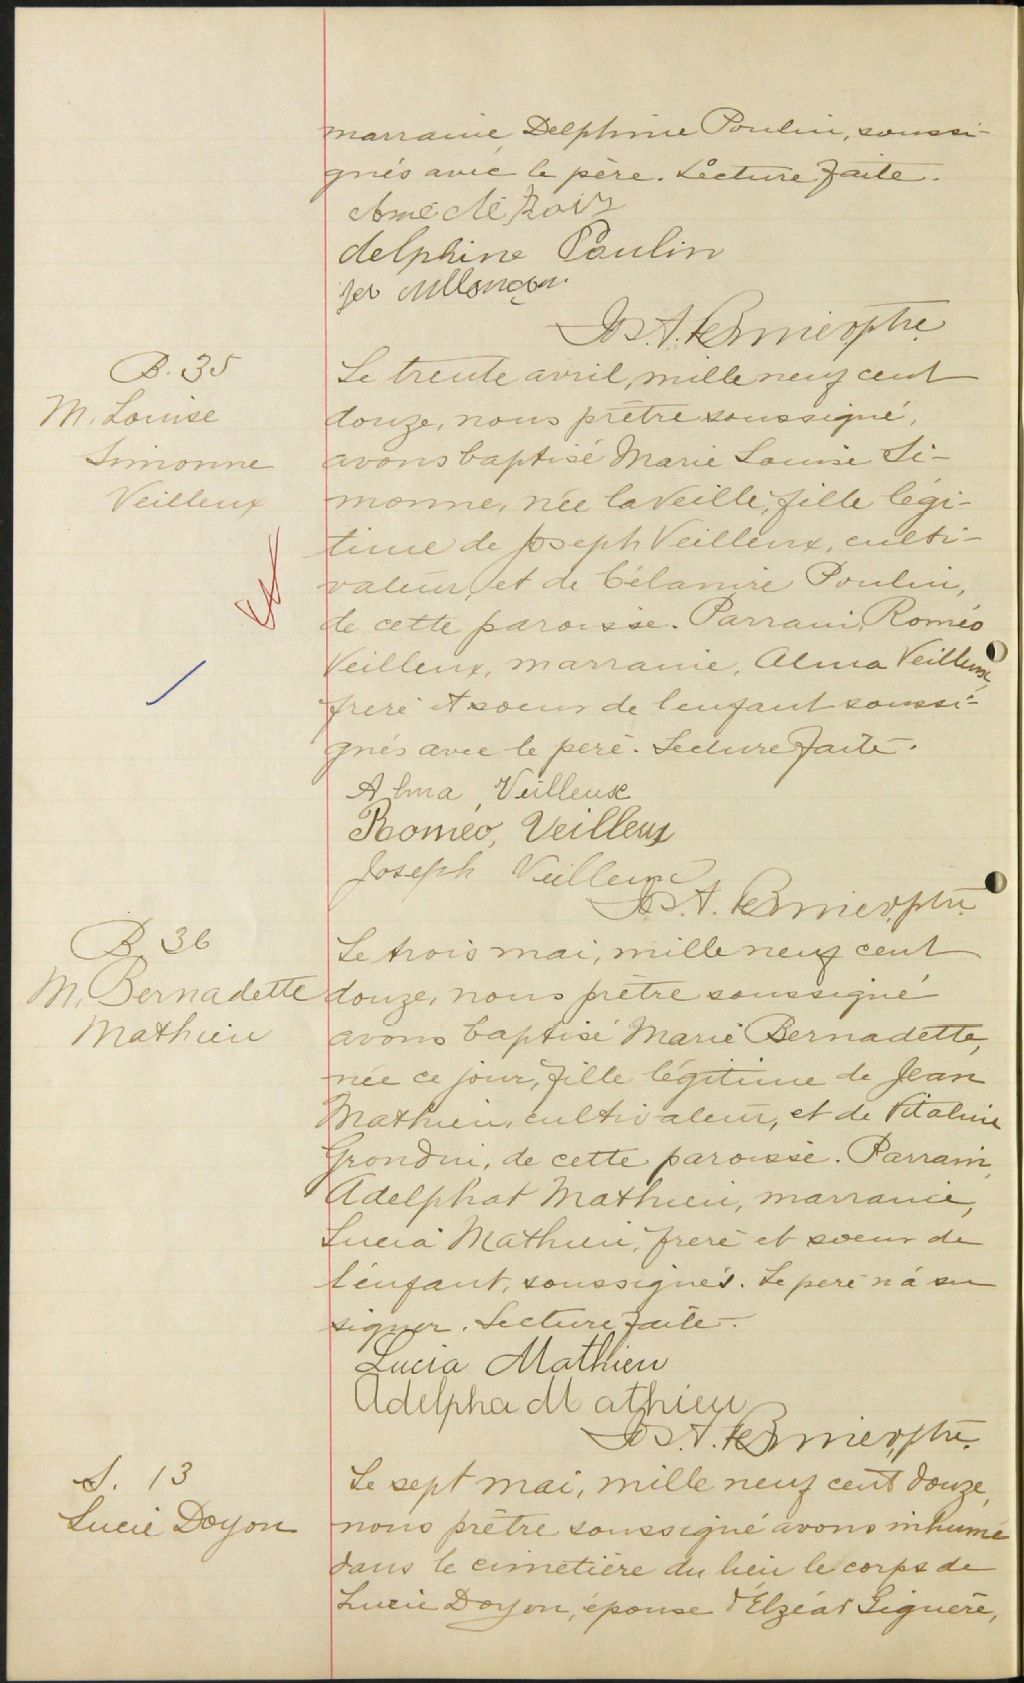 marraine, Delphine Poulin, soussi-
gnés avec le père. Lecture faite.
Amédé Roy
delphine Poulin
Jos. A. Bernier, ptre
B. 35
M. Louise
Simonne
Veilleux
Le trente avril, mille neuf cent
douze, nous prêtre soussigné,
avons baptisé Marie Louise Si-
monne, née la veille, fille légi-
time de Joseph Veilleux, culti-
vateur, et de Célamire Poulin,
de cette paroisse. Parrain, Roméo
Veilleux, marraine, Alma Veilleux,
frère et soeur de l'enfant soussi-
gnés avec le père. Lecture faite.
Alma, Veilleux
Roméo, Veilleux
Joseph Veilleux
Jos. A. Bernier, ptre
B. 36
M. Bernadette
Mathieu
Le trois mai, mille neuf cent
douze, nous prêtre soussigné
avons baptisé Marie Bernadette,
née ce jour, fille légitime de Jean
Mathieu, cultivateur, et de Vitaline
Grondin, de cette paroisse. Parrain,
Adelphat Mathieu, marraine,
Lucia Mathieu, frère et soeur de
l'enfant, soussignés. Le père n'a su
signer. Lecture faite.
Lucia Mathieu
Adelpha Mathieu
Jos. A. Bernier, ptre
S. 13
Lucie Doyon
Le sept mai, mille neuf cent douze,
nous prêtre soussigné avons inhumé
dans le cimetière du lieu le corps de
Lucie Doyon, épouse d'Elzéar Giguère,